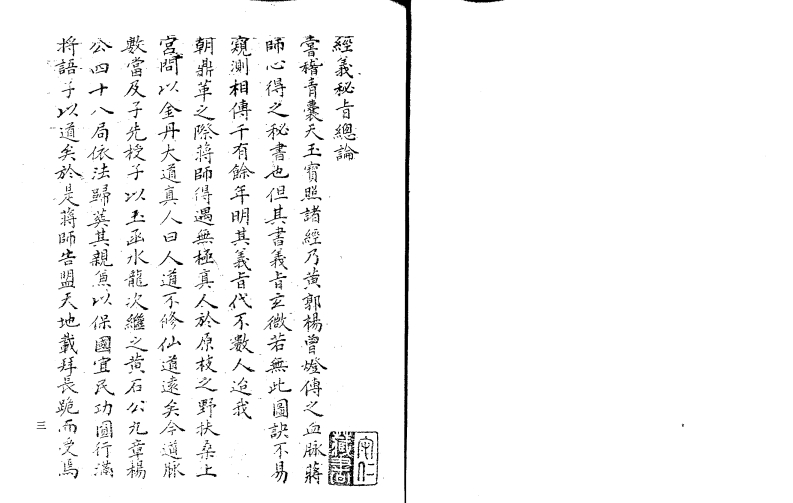 經義秘旨總論
嘗稽青囊天玉寶照諸經乃黃郭楊曾燈傳之血脉蔣
師心得之秘書也但其書義旨玄微若無此圖訣不易
窺測相傳千有餘年明其義旨代不數人迨我
朝鼎革之際蔣師得遇無極真人於原枝之野扶桑上
宮問以金丹大道真人曰人道不修仙道遠矣今道脉
數當及子先授子以玉函水龍次繼之黃石公九章楊
公四十八局依法歸葬其親兼以保國宜民功圓行滿
将語子以道矣於是蔣師告盟天地載拜長跪而受焉
三
守仁
藏書